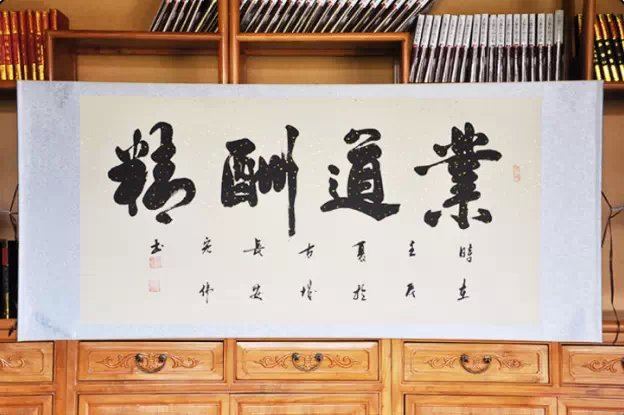 業道酬精
時在
壬辰
夏於
古城
長安
宏伟
书